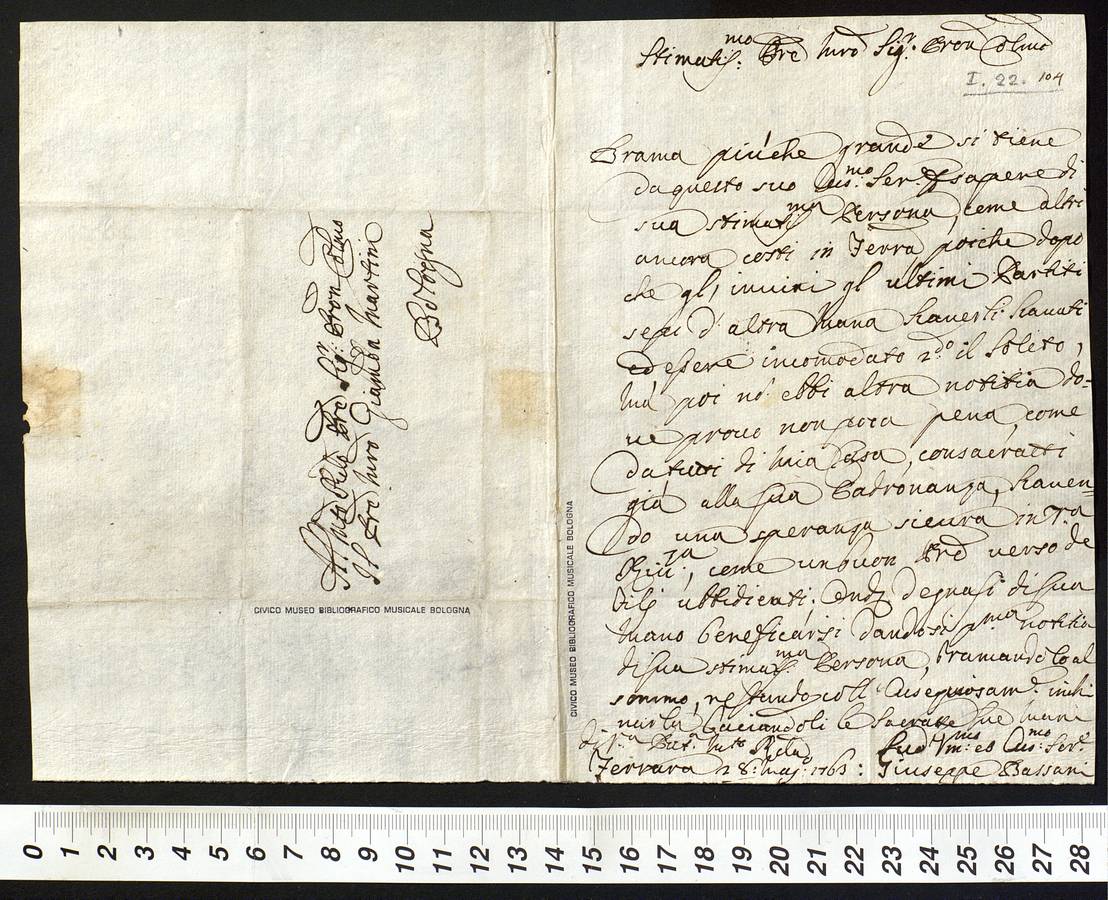 Stimatis.mo Pre Mro Sig.r Pron Colmo
I. 22. 104
Brama più che grande si tiene
da questo suo Dis.mo Ser.e sapere di
sua stimatis.ma Persona, come altri
ancora costì in Terra, poiche dopo
che gl' inviai gl ultimi Partiti
sepi d' altra mana haverli havuti
ed essere incomodato 2.do il solito,
mà poi nò ebbi altra notitia do-
ve provo non poca pena, come
da tutti di mia Casa, consacrati
già alla sua Padronanza, haven=
do una speranza sicura in V.ra
Riv.za, come un buon Pre verso de
Figli ubbidienti. Onde degnasi di sua
mano beneficarsi dandosi p.ma notitia
di sua stimatis.ma Persona, bramandolo al
sommo, restando coll' Ossequiosam.e inchi
narla baciandoli le Sacrate sue mani
di V.ra Pat.à M.to R.da
Suo Um.mo ed Dis.mo Ser.e
Ferrara 28: Mag: 1763: Giuseppe Bassani
Al Mto Rdo Pre Sig.r Pron Colmo
Il Pre Mro Giamba Martini
Bologna
CIVICO MUSEO BIBLIOGRAFICO MUSICALE BOLOGNA
CIVICO MUSEO BIBLIOGRAFICO MUSICALE BOLOGNA
0 1 2 3 4 5 6 7 8 9 10 11 12 13 14 15 16 17 18 19 20 21 22 23 24 25 26 27 28